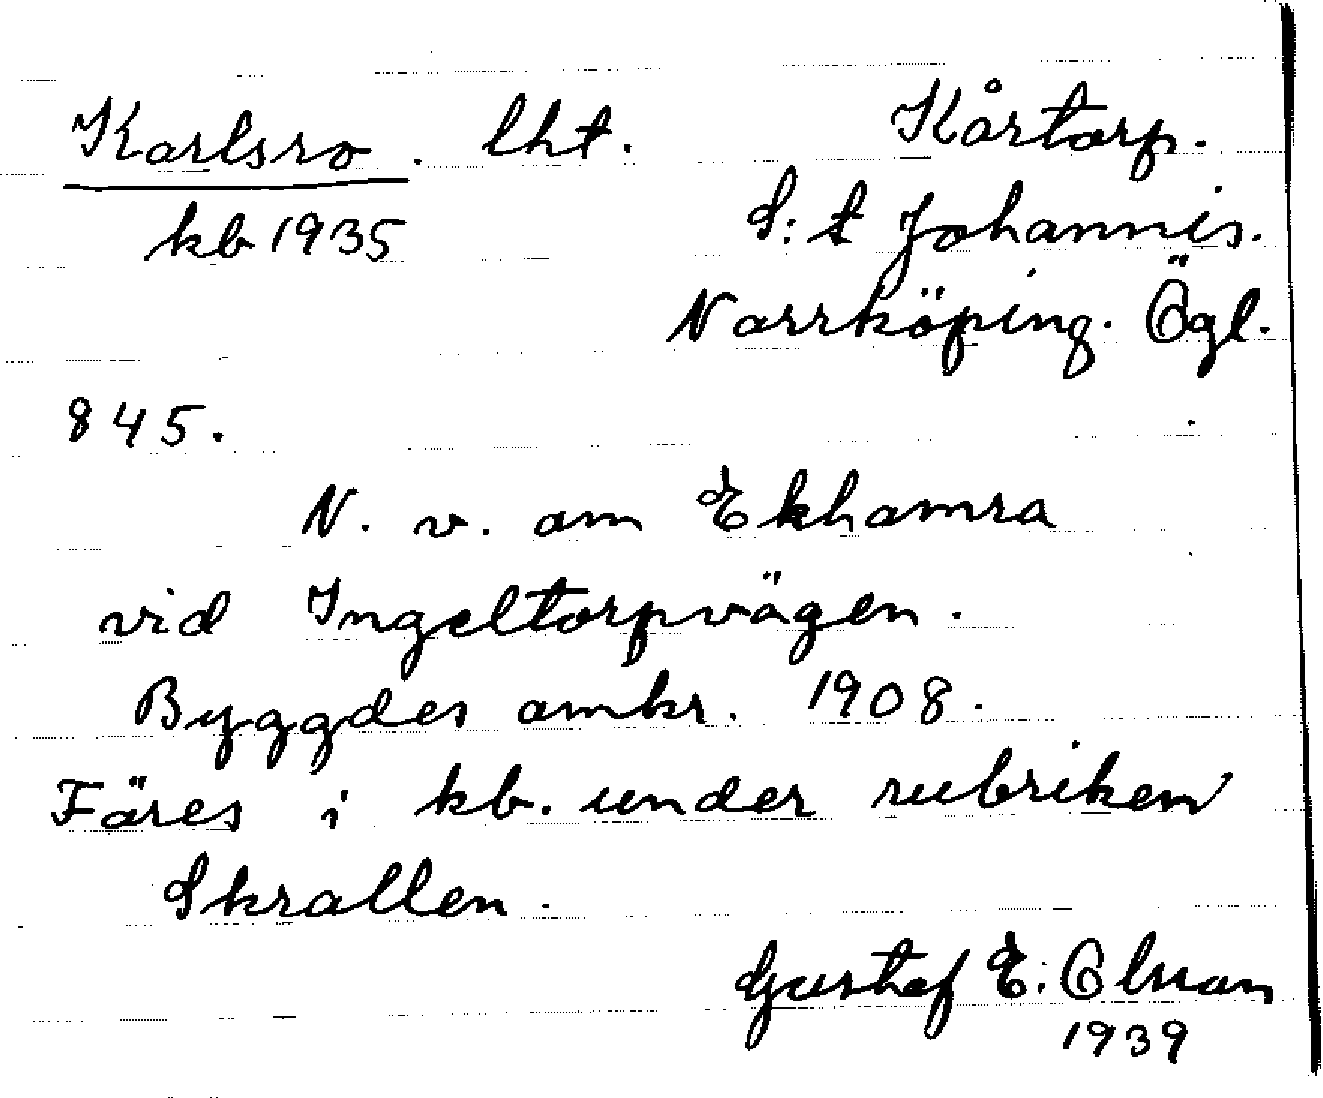 Karlsro. lht. Kårtorp.
kb 1935 S:t Johannis.
Norrköping. Ögl.
845.
N. v. om Ekhamra
vid Ingeltorpvägen.
Byggdes omkr. 1908.
Föres i kb. under rubriken
Skrallen.
Gustaf E. Olman
1939